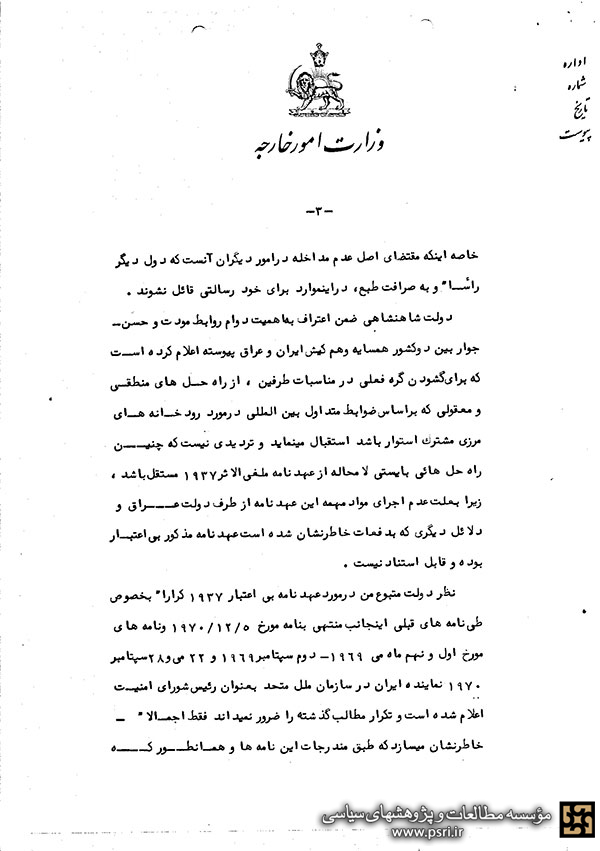 اداره
شماره
تاریخ
پیوست
وزارت امور خارجه
-۳-
خاصه اینکه مقتضای اصل عدم مداخله در امور دیگران آنست که دول دیگر
رأسا" و به صرافت طبع، در اینموارد برای خود رسالتی قائل نشوند .
دولت شاهنشاهی ضمن اعتراف به اهمیت دوام روابط مودت و حسن-
جوار بین دو کشور همسایه و هم کیش ایران و عراق پیوسته اعلام کرده است
که برای گشودن گره فعلی در مناسبات طرفین ، از راه حل های منطقی
و معقولی که بر اساس ضوابط متداول بین المللی در مورد رودخانه های
مرزی مشترك استوار باشد استقبال مینماید و تردیدی نیست که چنین
راه حل هائی بایستی لامحاله از عهدنامه ملغی الاثر ۱۹۳۷ مستقل باشد ،
زیرا بعلت عدم اجرای مواد مهمه این عهدنامه از طرف دولت عراق و
دلائل دیگری که بدفعات خاطرنشان شده است عهدنامه مذکور بی اعتبار
بوده و قابل استناد نیست .
نظر دولت متبوع من در مورد عهدنامه بی اعتبار ۱۹۳۷ کرارا" بخصوص
طی نامه های قبلی اینجانب منتهی بنامه مورخ ۱۹۷۰/۱۲/۵ و نامه های
مورخ اول و نهم ماه می ۱۹۶۹- دوم سپتامبر ۱۹۶۹ و ۲۲ می و ۲۸ سپتامبر
۱۹۷۰ نماینده ایران در سازمان ملل متحد بعنوان رئیس شورای امنیت
اعلام شده است و تکرار مطالب گذشته را ضرور نمیداند فقط اجمالا" -
خاطرنشان میسازد که طبق مندرجات این نامه ها و همانطور که
مؤسسه مطالعات و پژوهشهای سیاسی
www.psri.ir